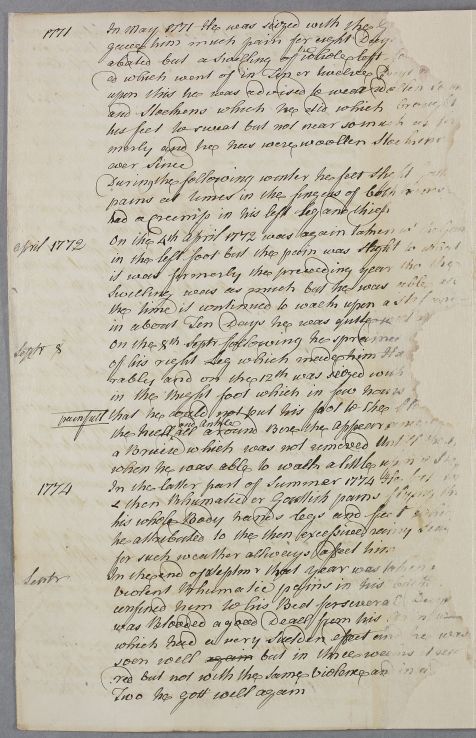 1771
In May 1771 He was seized with the
gave him much pain for eight Days
abated but a swelling of the whole left
ed which went of in Ten or twelve Days
upon this he was advised to wear
and Stockens which he did which brought
his feet to sweat but not near so much as for
merly and he has were woollen Stockens
ever Since
During the following winter he felt slight
pains at times in the fingers of both
had a in his left leg and thigh
April 1772
On the 4th April 1772 was again taken
in the left foot but the pain was slight to what
it was formerly the preceeding year the
Swelling was as much but he was able
the time it continued to walk upon a
in about Ten Days he was quite
Septr 8
On the 8th Septr following he sprained
of his right Leg which made him
rably and on the 12th was seized with
in the Right foot which in few hours
painfull
that he could not put his foot to the
the heel and Ankle all around Bore the appearance
a Bruise which was not removed until
when he was able to walk a little upon
1774
In the latter part of Summer 1774 He felt
& then Rhumatic or Goutish pains
his whole Body hands legs and feet
he attributed to the then excessive rainy
for such weather allways affect him
Septr
In the end of Septmr that year was taken
violent Rhumatic pains in his
confined him to his Bed for several Days
was Blooded a good Deall from his
which had a very Sudden effect he were
soon well again but in three weeks
red but not with the same Violence and in
Two he gott well again